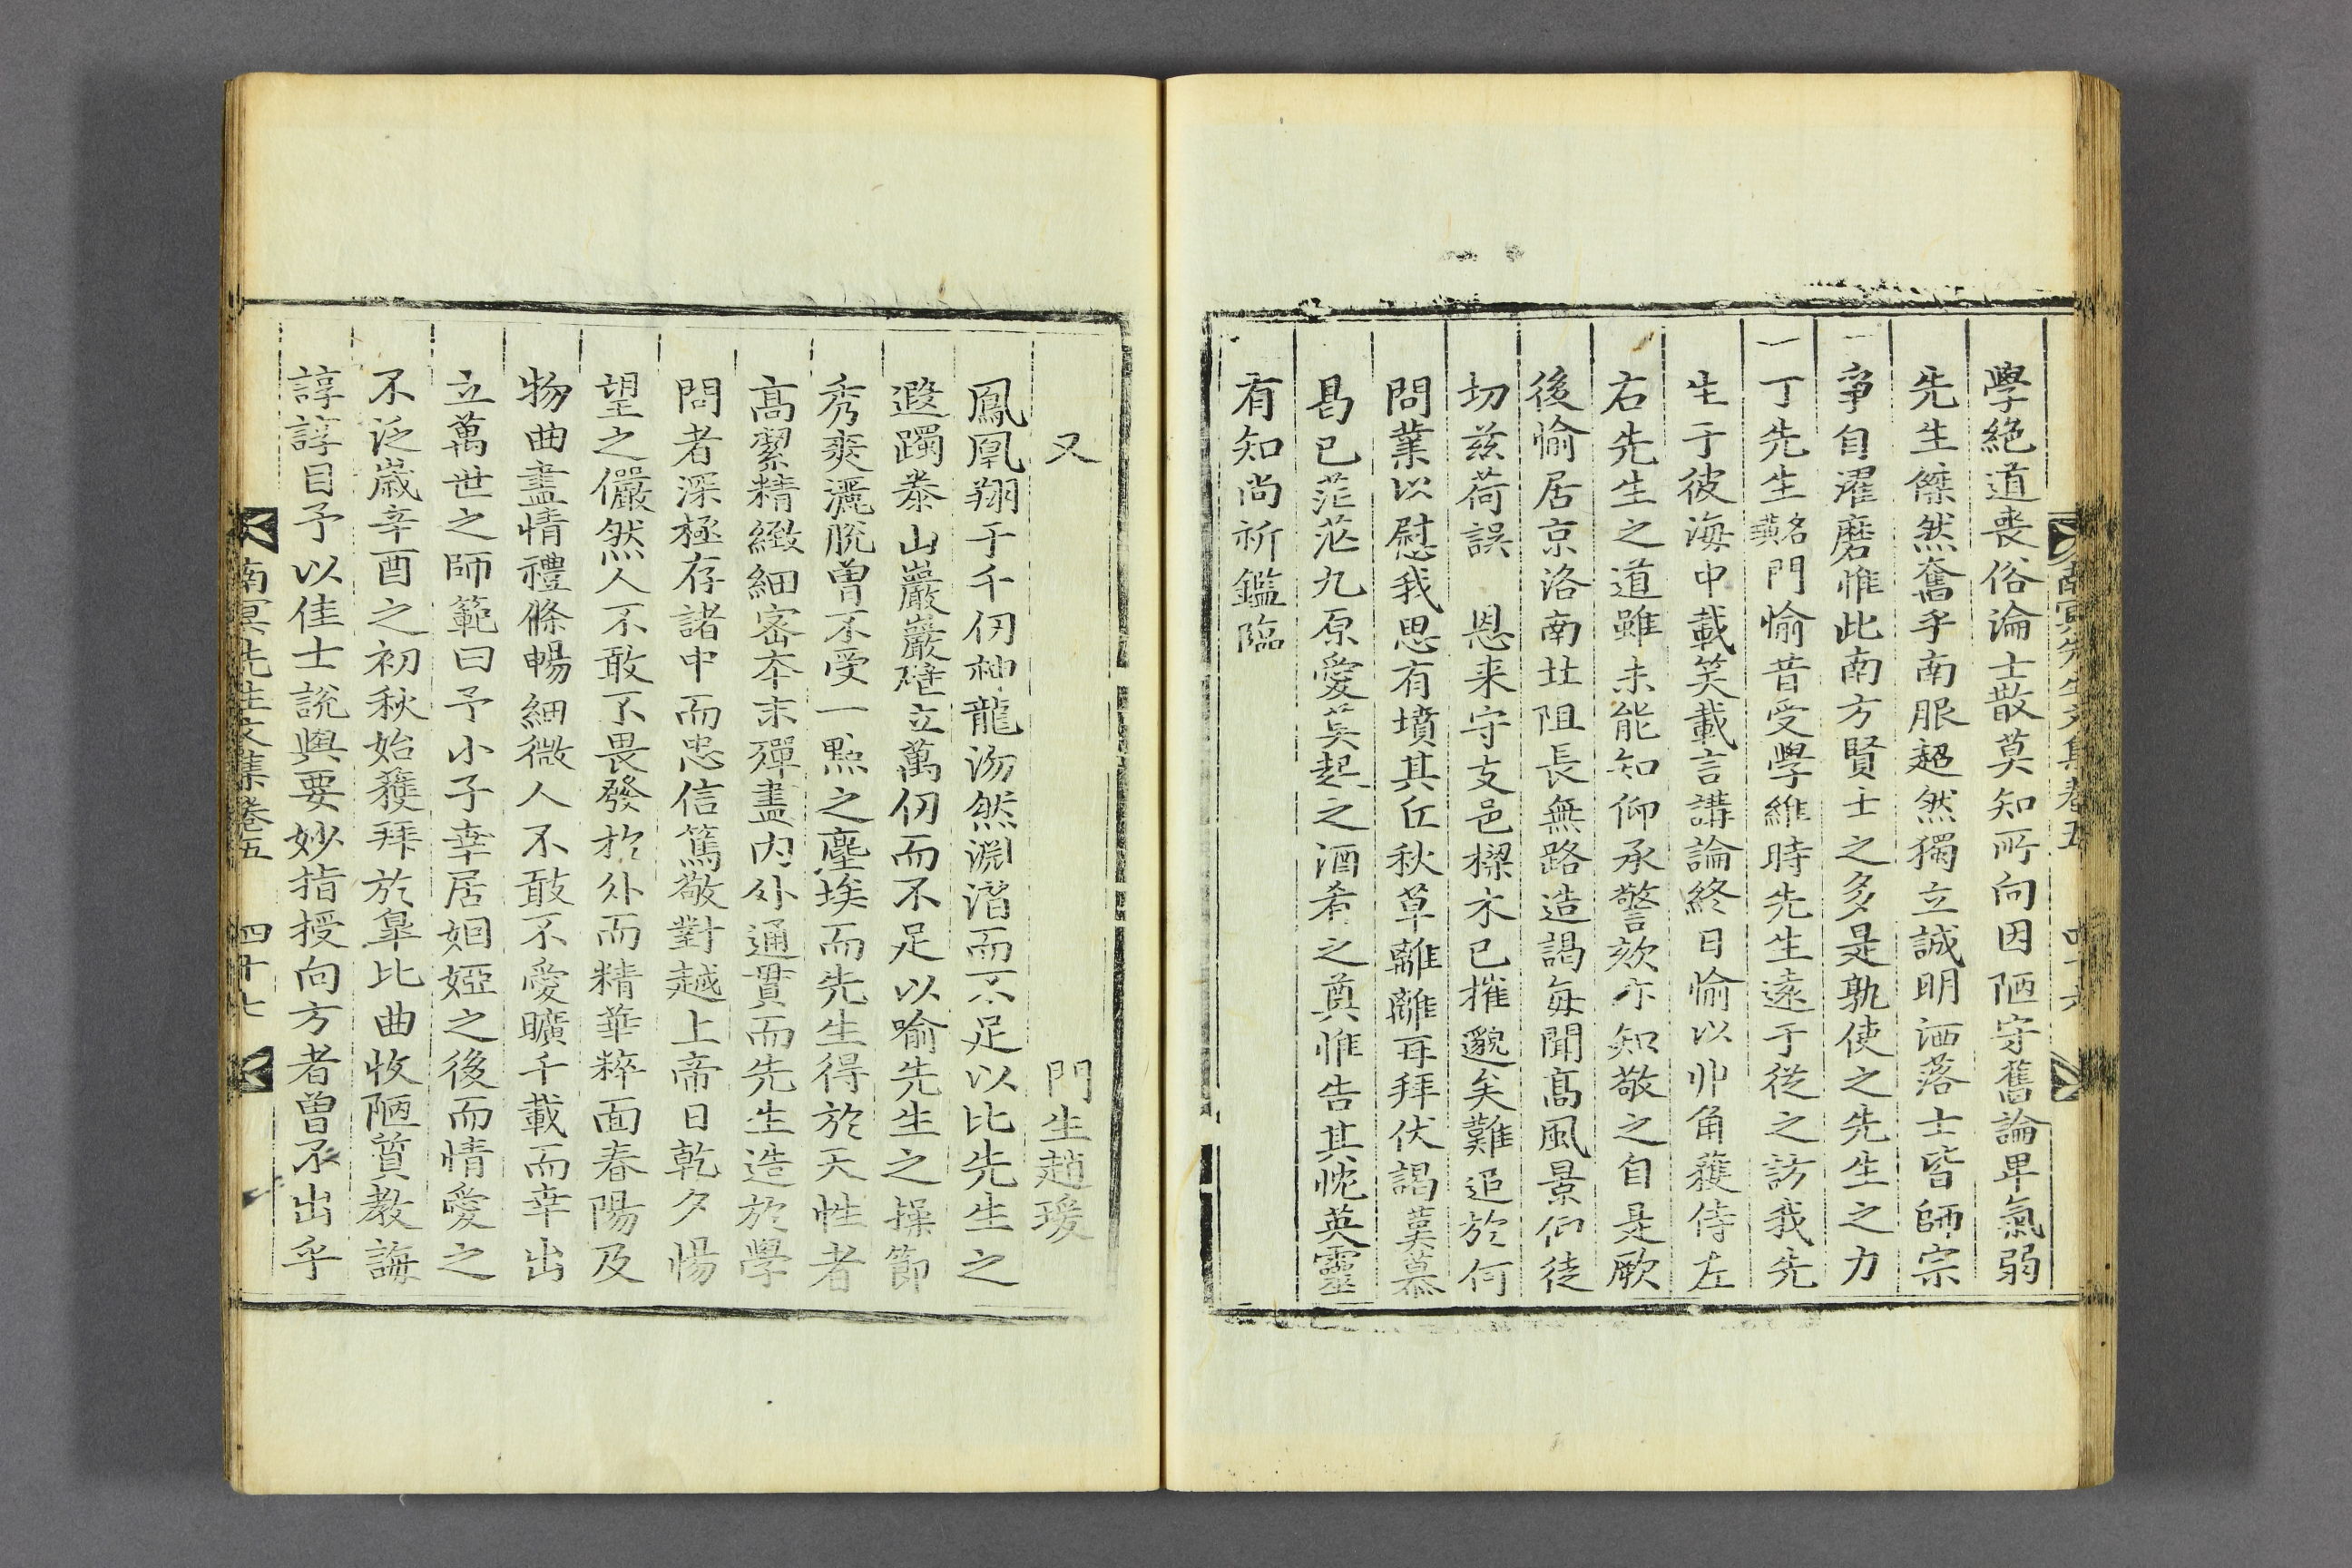 學絕道喪俗論士散莫知所向因陋守舊論卑氣弱
先生傑然奮乎南服超然獨立誠明洒落士皆師宗
爭自濯磨惟此南方賢士之多是孰使之先生之力
一丁先生燕名門愉昔受學維時先生遠于從之訪我先
生于彼海中載笑載言講論終日愉以丱角獲侍左
右先生之道雖未能知仰承警欬亦知敬之自是厥
後愉居京洛南北阻長無路造謁每聞高風景仰徒
切兹荷誤 恩来守支邑樑木已摧邈矣難追於何
問業以慰我思有墳其丘秋草離離再拜伏謁莫慕
曷已茫茫九原愛莫起之酒肴之奠惟告其忱英靈
有知尚祈鑑臨
又 門生趙瑗
鳳凰翔于千仞神龍沕然淵潛而不足以比先生之
遐躅泰山巖巖壁立萬仞而不足以喻先生之操節
秀爽灑脫曾不受一點之塵埃而先生得於天性者
高潔精緻細密本末殫盡內外通貫而先生造於學
問者深極存諸中而忠信篤敬對越上帝日乾夕惕
望之儼然人不敢不畏發於外而精華粹面春陽及
物曲盡情禮條暢細微人不敢不愛曠千載而幸出
立萬世之師範曰予小子幸居姻婭之後而情愛之
不泛歲辛酉之初秋始獲拜於皐比曲收陋質教誨
諄諄目予以佳士說與要妙指授向方者曾不出乎
南冥先生文集卷五 四十七